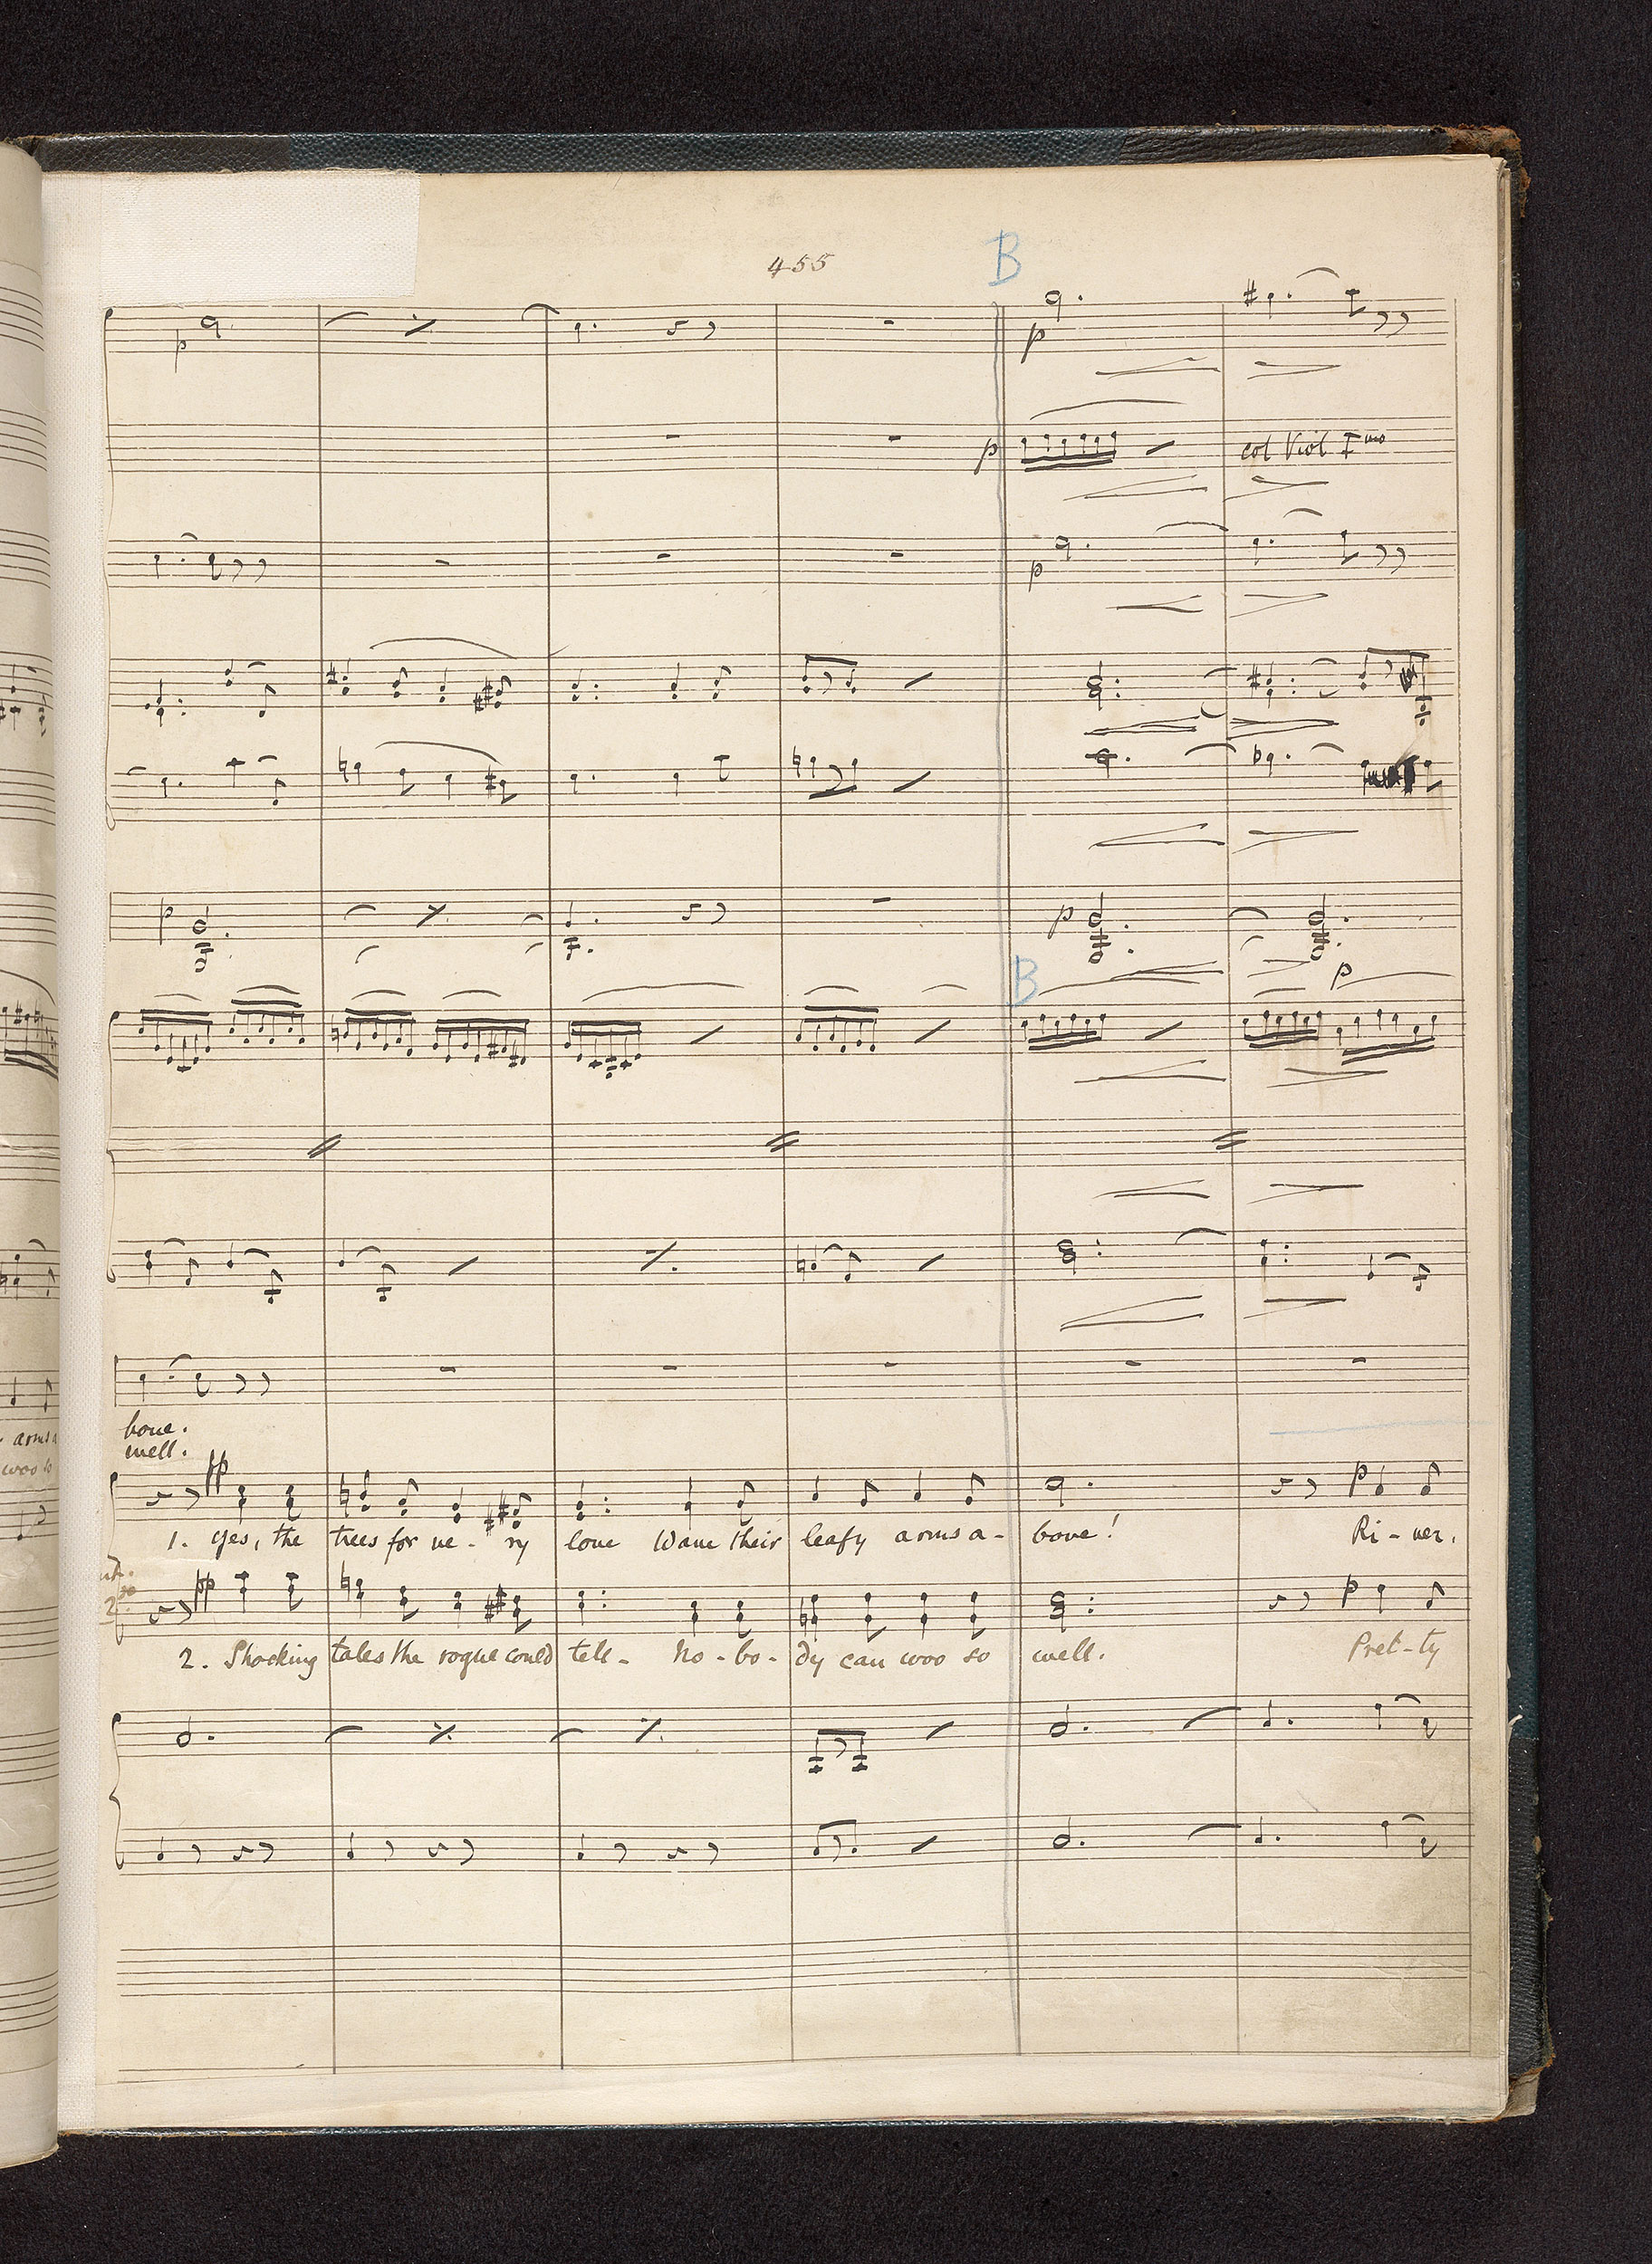 455
B
p
p
p
col Viol Imo
p
p
p
p
B
p
bove.
well.
pp
p
1. Yes, the trees for ve - ry love Wave their leafy arms a - bove! Ri - ver,
2do
pp
p
2. Shocking tales the rogue could tell - No - bo - dy can woo so well. Pret - ty
arms a
woo so